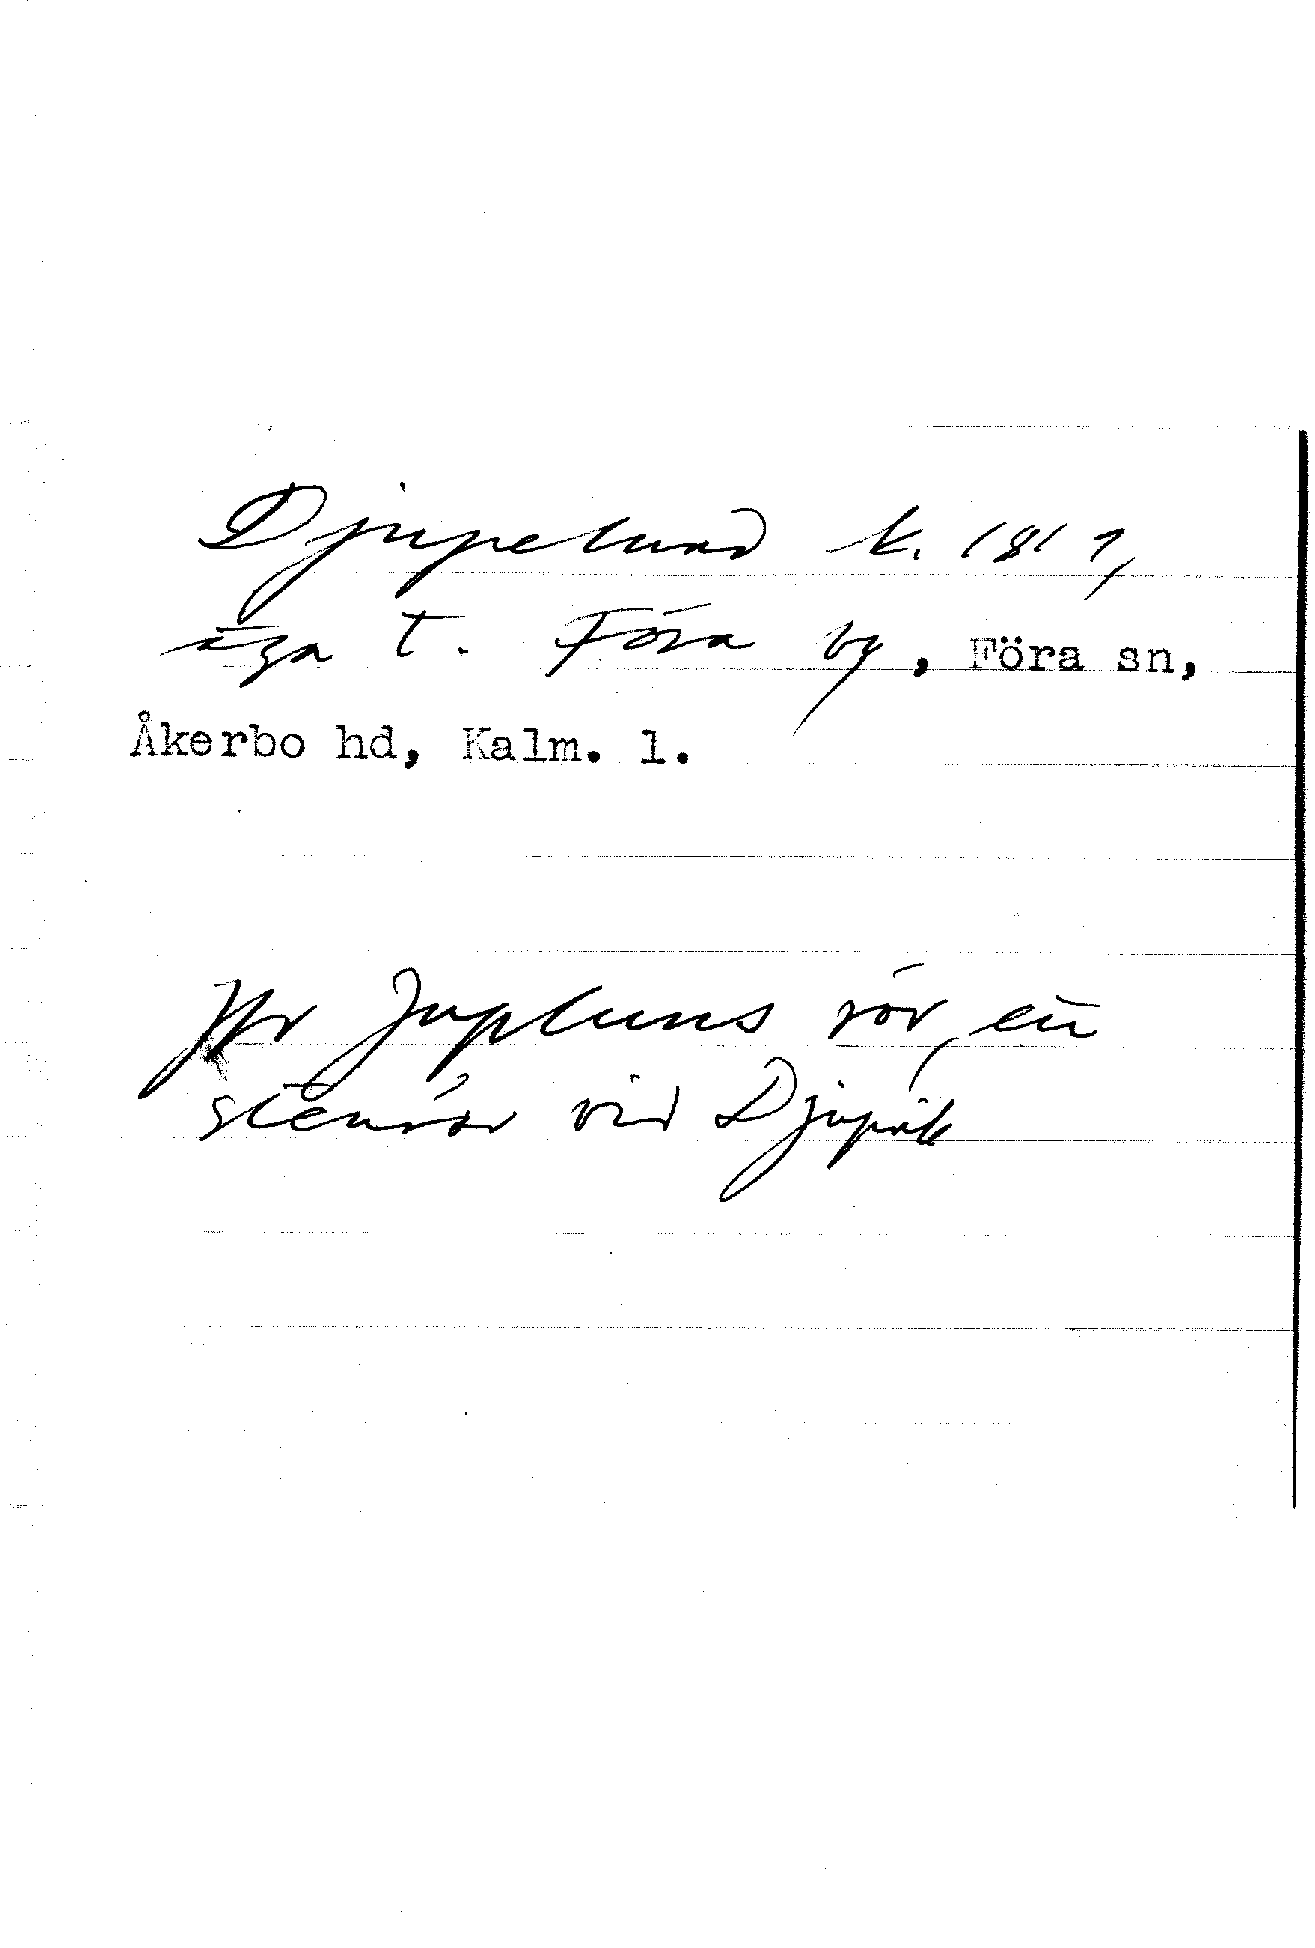 Djupelund k. 1819,
äga t. Föra by, Föra sn,
Åkerbo hd, Kalm. l.
Jfr Juplunds rör, ett
stenrör vid Djupvik